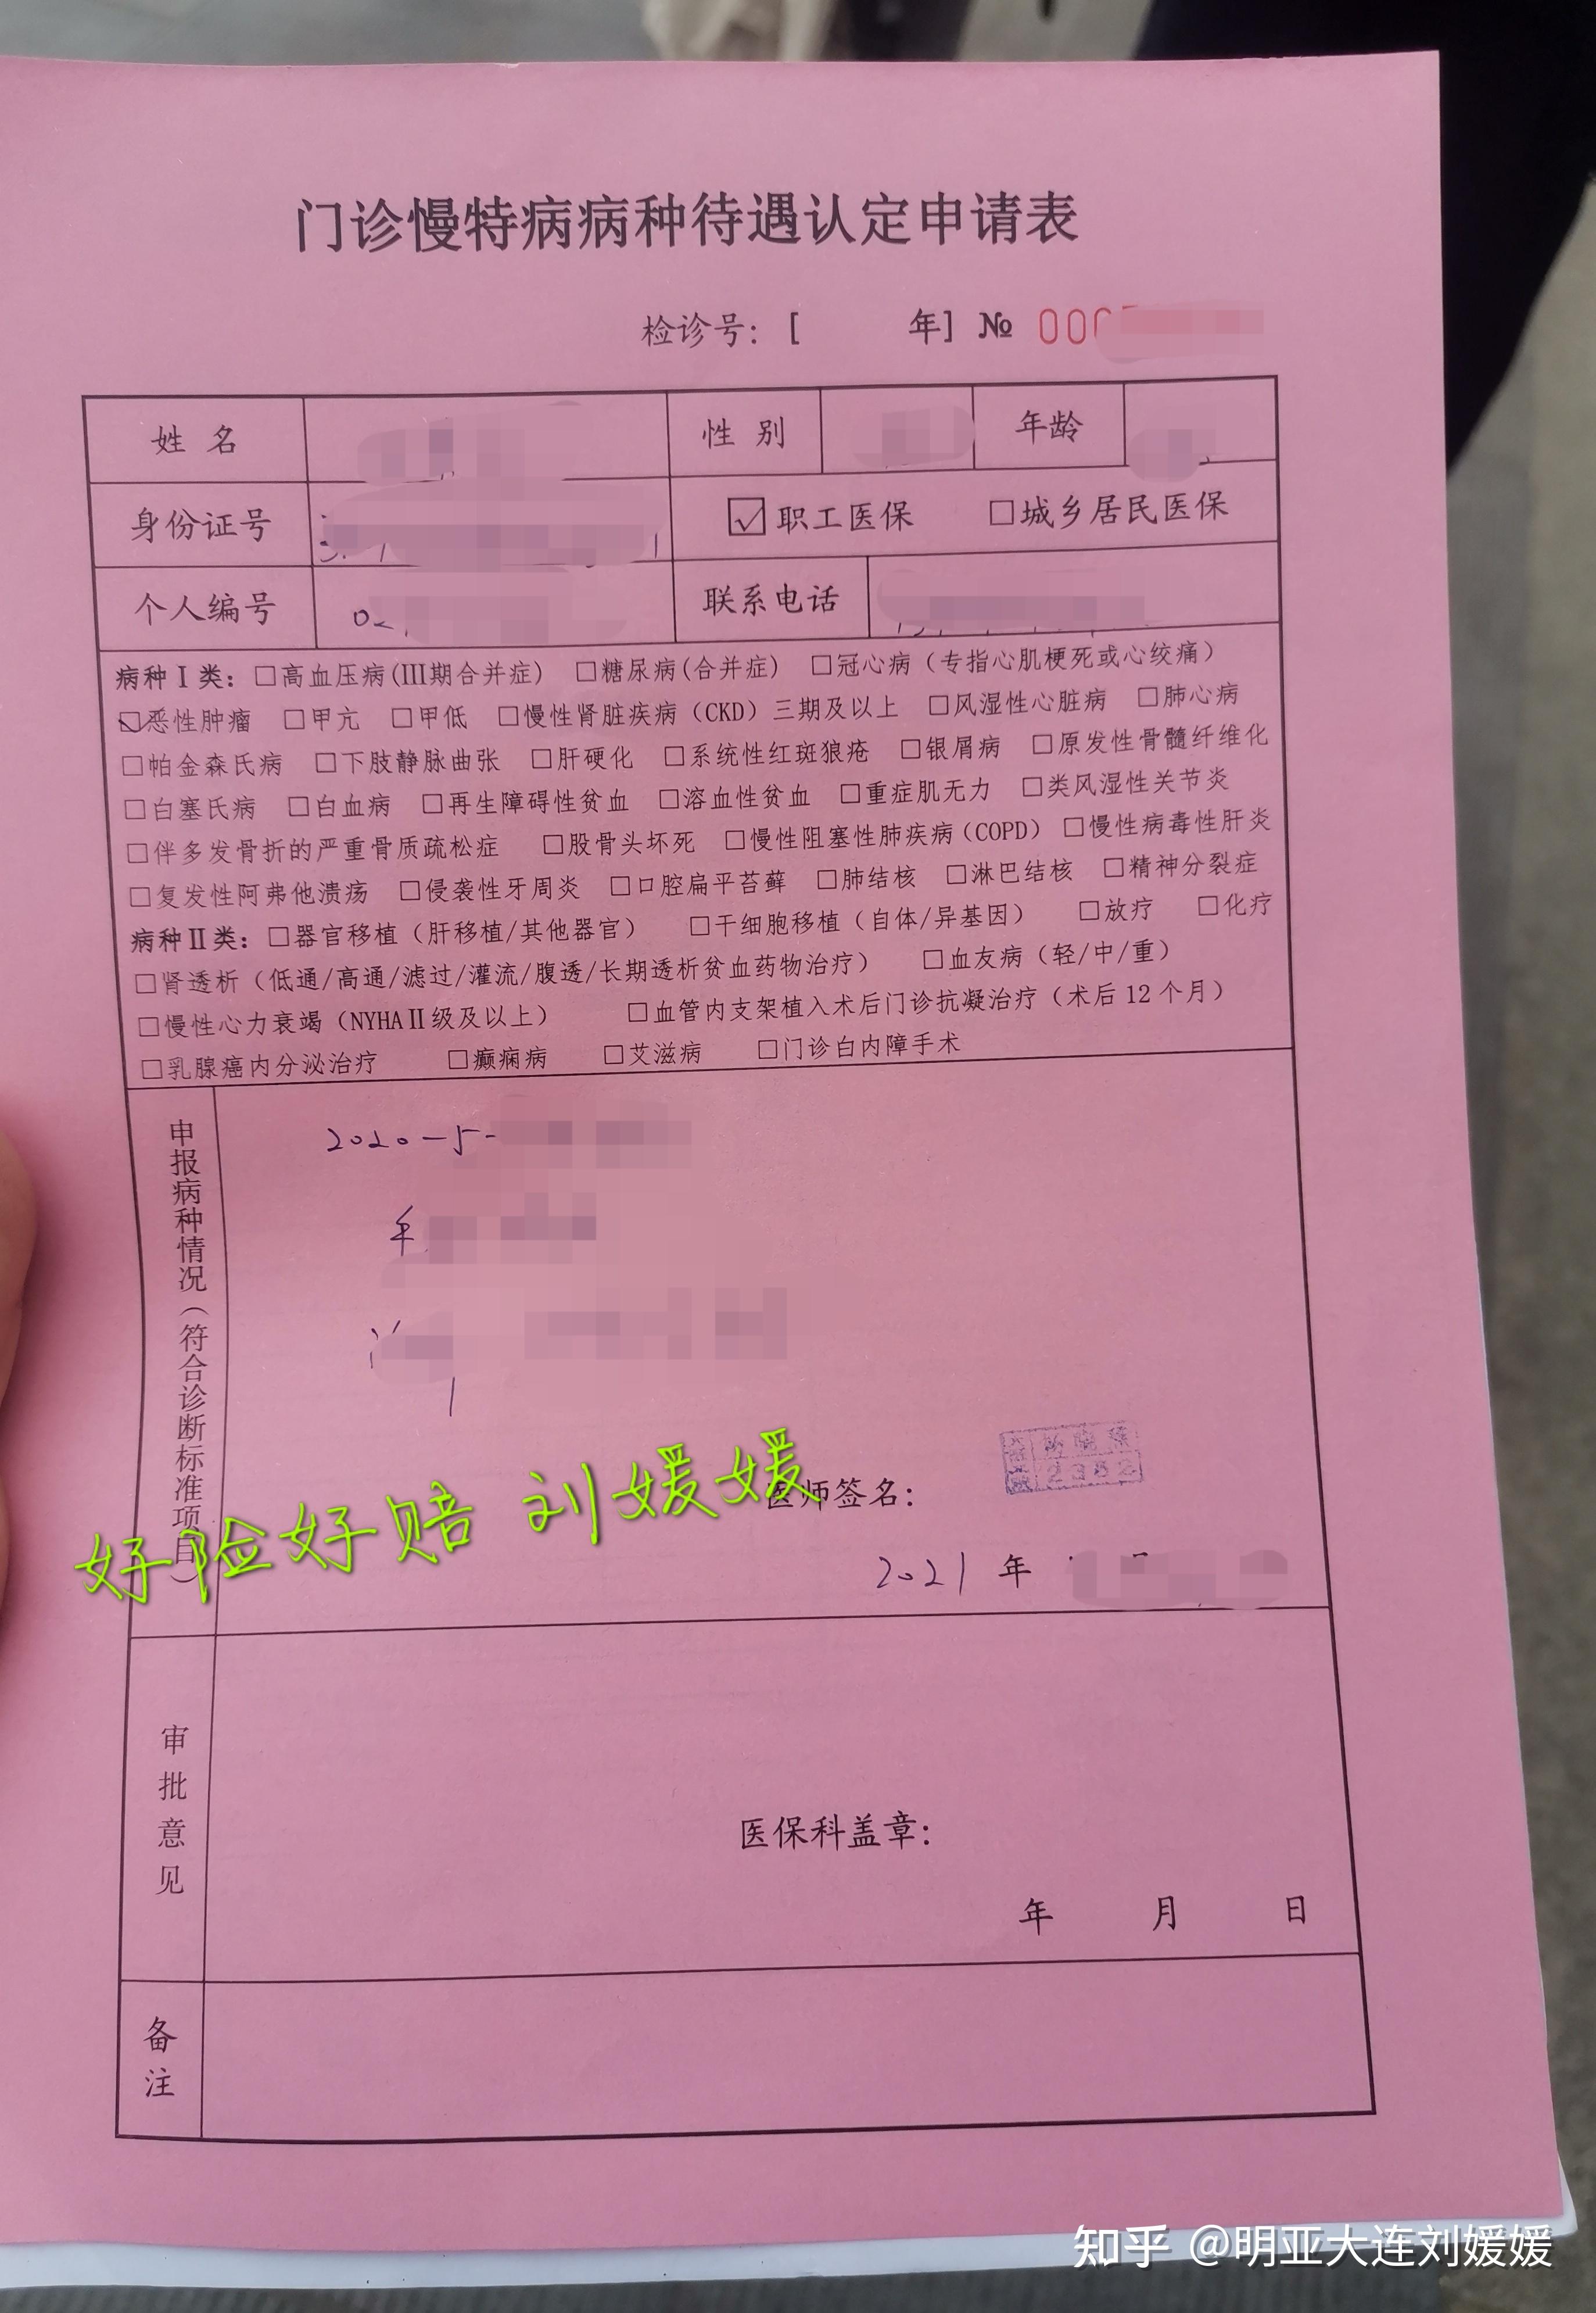 门诊慢特病病种待遇认定申请表
检诊号：[ 年] № 000
姓 名 性 别 年龄
身份证号 ☑职工医保 □城乡居民医保
个人编号 02 联系电话
病种Ⅰ类：□高血压病(III期合并症) □糖尿病(合并症) □冠心病（专指心肌梗死或心绞痛）
☑恶性肿瘤 □甲亢 □甲低 □慢性肾脏疾病（CKD）三期及以上 □风湿性心脏病 □肺心病
□帕金森氏病 □下肢静脉曲张 □肝硬化 □系统性红斑狼疮 □银屑病 □原发性骨髓纤维化
□白塞氏病 □白血病 □再生障碍性贫血 □溶血性贫血 □重症肌无力 □类风湿性关节炎
□伴多发骨折的严重骨质疏松症 □股骨头坏死 □慢性阻塞性肺疾病(COPD) □慢性病毒性肝炎
□复发性阿弗他溃疡 □侵袭性牙周炎 □口腔扁平苔藓 □肺结核 □淋巴结核 □精神分裂症
病种Ⅱ类：□器官移植（肝移植/其他器官） □干细胞移植（自体/异基因） □放疗 □化疗
□肾透析（低通/高通/滤过/灌流/腹透/长期透析贫血药物治疗） □血友病（轻/中/重）
□慢性心力衰竭（NYHAⅡ级及以上） □血管内支架植入术后门诊抗凝治疗（术后12个月）
□乳腺癌内分泌治疗 □癫痫病 □艾滋病 □门诊白内障手术
申报病种情况（符合诊断标准项目）
2020-5-
好险好赔 刘媛媛
医师签名：
2352
2021 年
审批意见
医保科盖章：
年 月 日
备注
知乎 @明亚大连刘媛媛